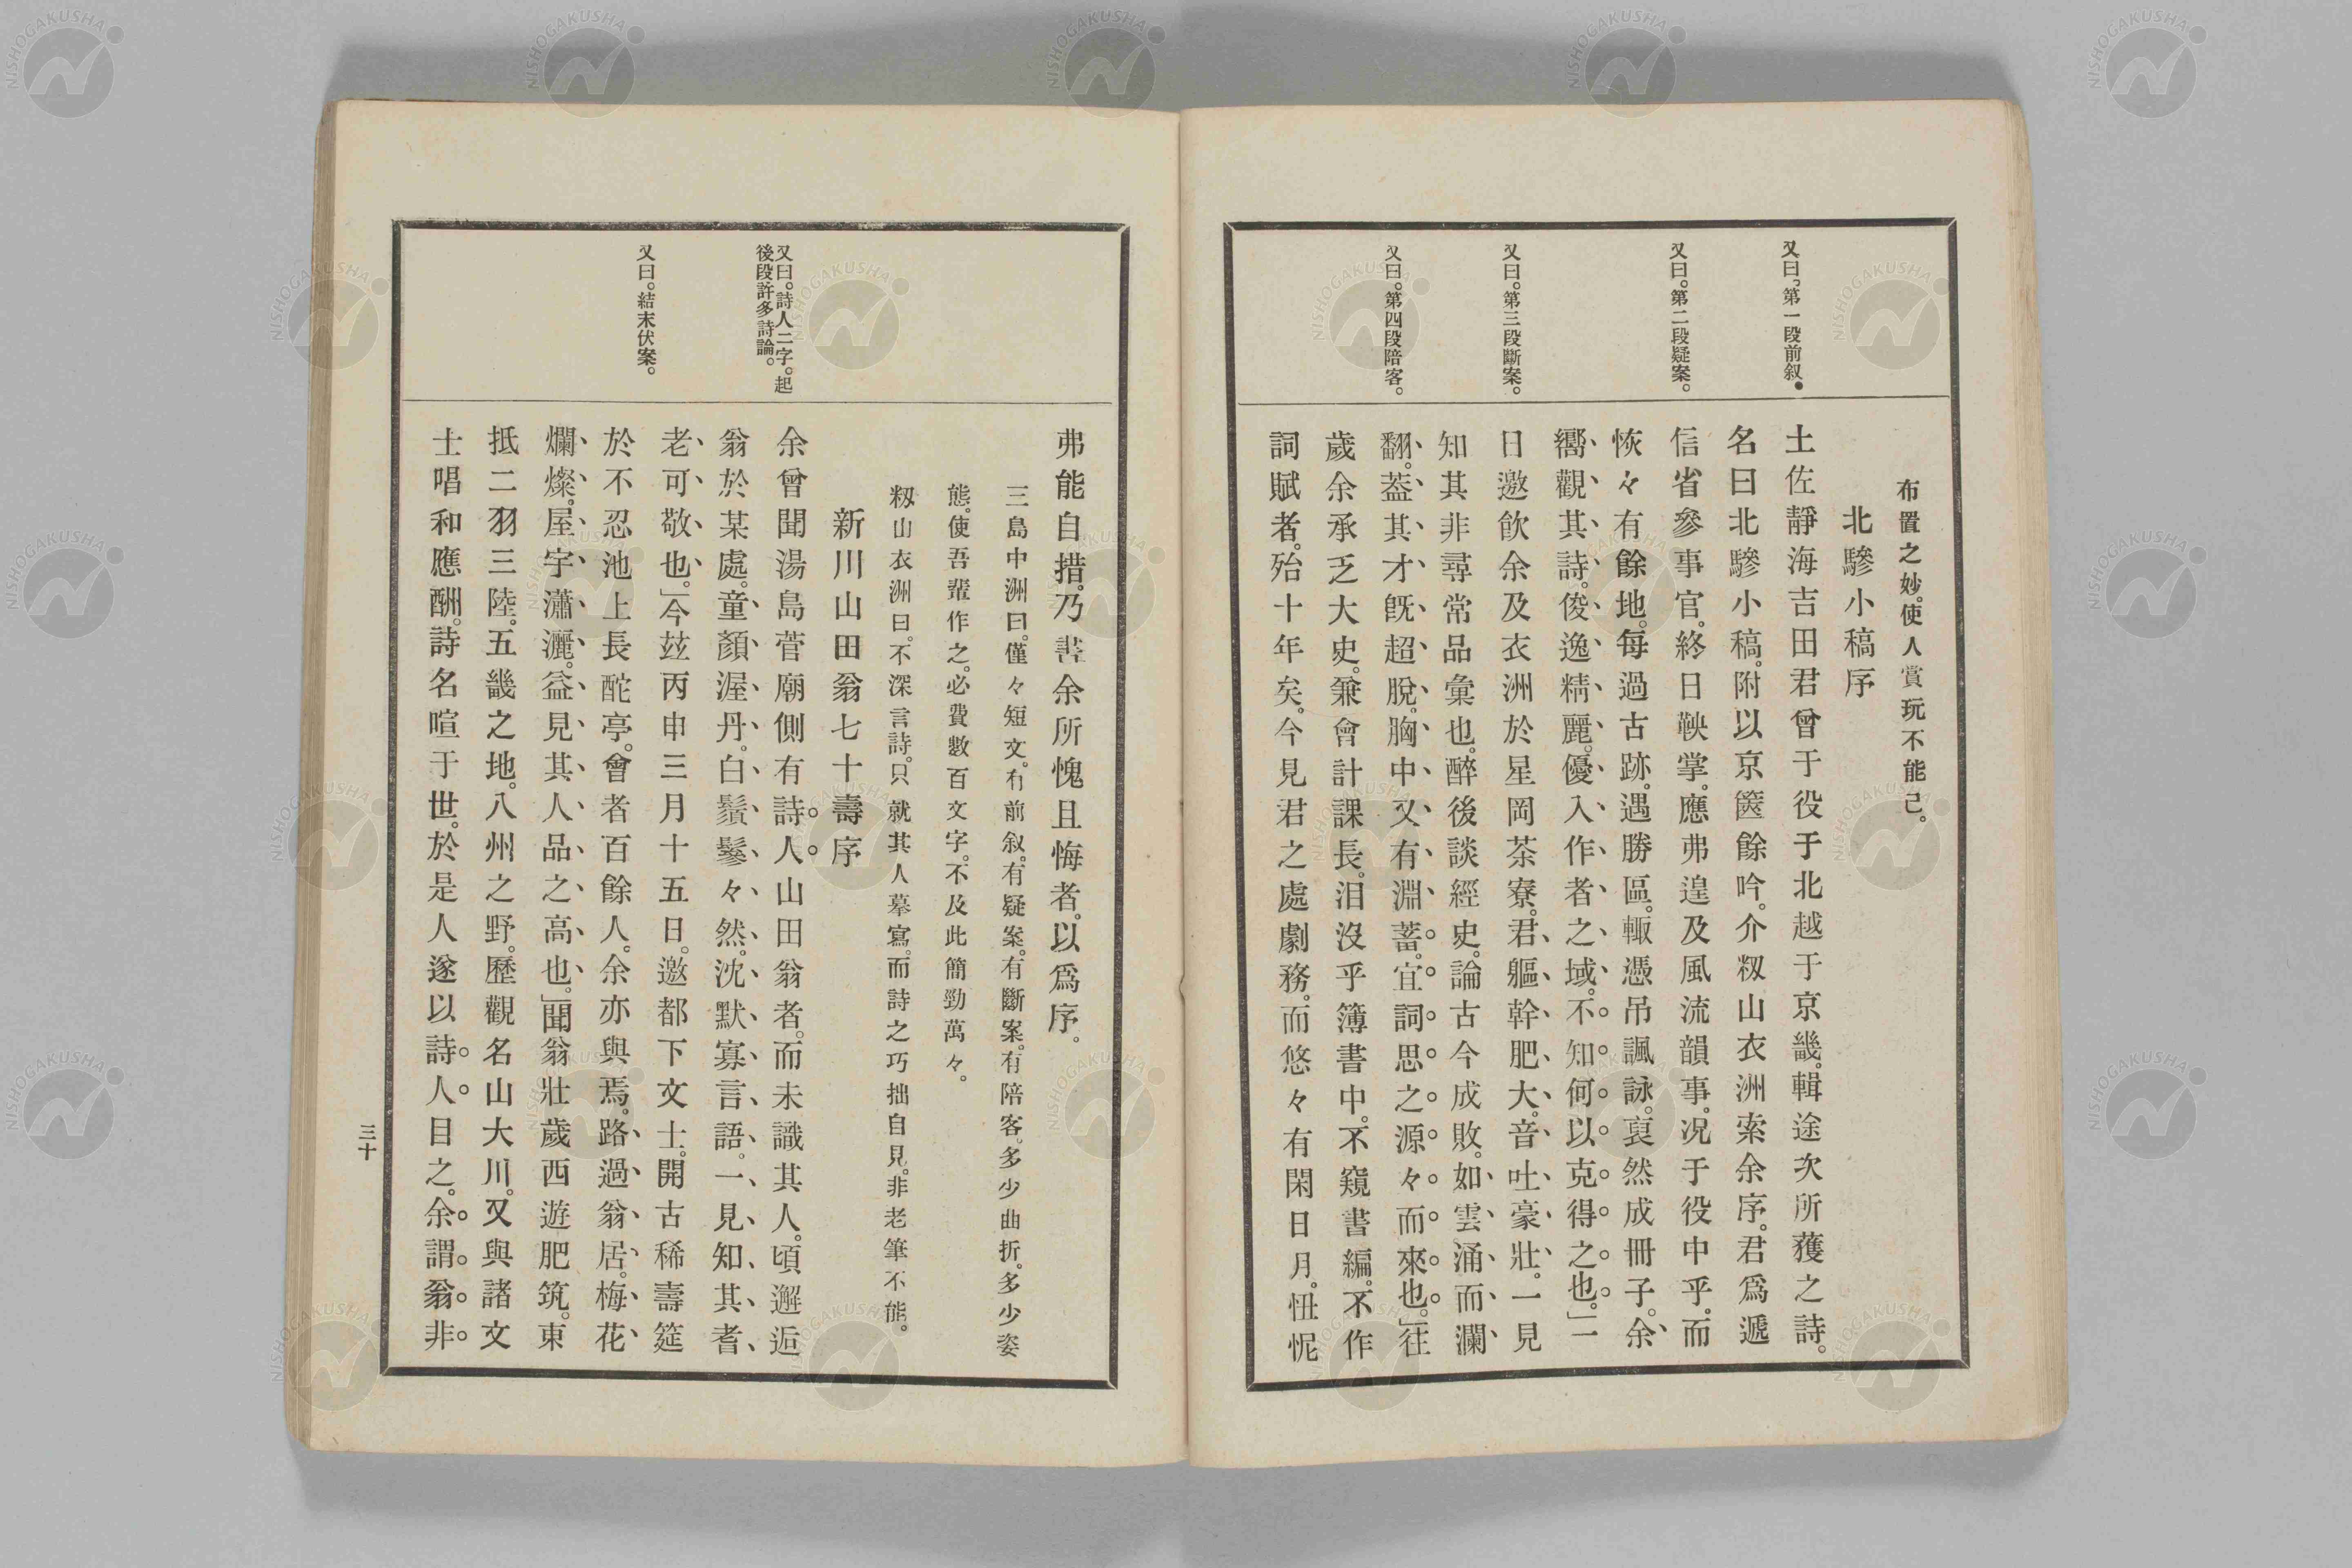 又曰。第一段前叙。
又曰。第二段疑案。
又曰。第三段斷案。
又曰。第四段陪客。
布置之妙。使人賞玩不能已。
北驂小稿序
土佐靜海吉田君曾于役于北越于京畿。輯途次所獲之詩。
名曰北驂小稿。附以京篋餘吟。介籾山衣洲索余序。君爲遞
信省參事官。終日鞅掌。應弗遑及風流韻事。况于役中乎。而
恢々有餘地。每過古跡。遇勝區。輙憑吊諷詠。裒然成冊子。余
嚮觀其詩。俊逸精麗。優入作者之域。不知何以克得之也。」一
日邀飮余及衣洲於星岡茶寮。君軀幹肥大。音吐豪壯。一見
知其非尋常品彙也。醉後談經史。論古今成敗。如雲涌而瀾
翻。葢其才旣超脫。胸中又有淵蓄。宜詞思之源々而來也。」往
歲余承乏大史。兼會計課長。汨沒乎簿書中。不窺書編。不作
詞賦者。殆十年矣。今見君之處劇務。而悠々有閑日月。忸怩
又曰。詩人二字。起
後段許多詩論。
又曰。結末伏案。
弗能自措。乃書余所愧且悔者。以爲序。
三島中洲曰。僅々短文。有前叙。有疑案。有斷案。有陪客。多少曲折。多少姿
態。使吾輩作之。必費數百文字。不及此簡勁萬々。
籾山衣洲曰。不深言詩。只就其人摹寫。而詩之巧拙自見。非老筆不能。
新川山田翁七十壽序
余曾聞湯島菅廟側有詩人山田翁者。而未識其人。頃邂逅
翁於某處。童顏渥丹。白鬚鬖々然。沈默寡言語。一見知其耆
老可敬也。」今玆丙申三月十五日。邀都下文士。開古稀壽筵
於不忍池上長酡亭。會者百餘人。余亦與焉。路過翁居。梅花
爛燦。屋宇瀟灑。益見其人品之高也。」聞翁壯歲西遊肥筑。東
抵二羽三陸。五畿之地。八州之野。歷觀名山大川。又與諸文
士唱和應酬。詩名喧于世。於是人遂以詩人目之。余謂翁非
三十